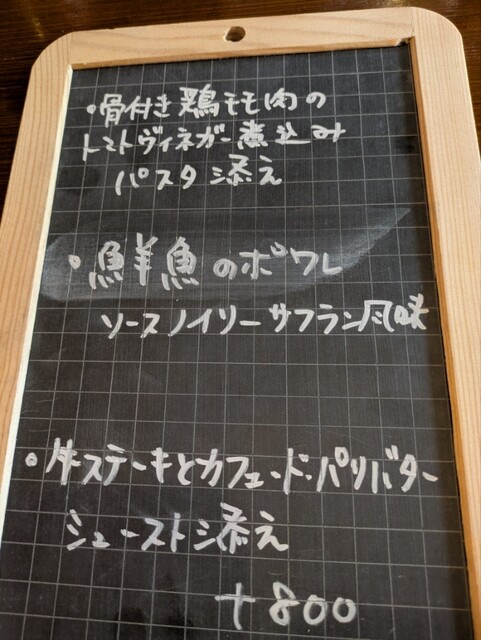 ・骨付き鶏モモ肉の
トマトヴィネガー煮込み
パスタ添え
・鮮魚のポワレ
ソースノイリーサフラン風味
・牛ステーキとカフェ・ド・パリバター
シューストリ添え
+800